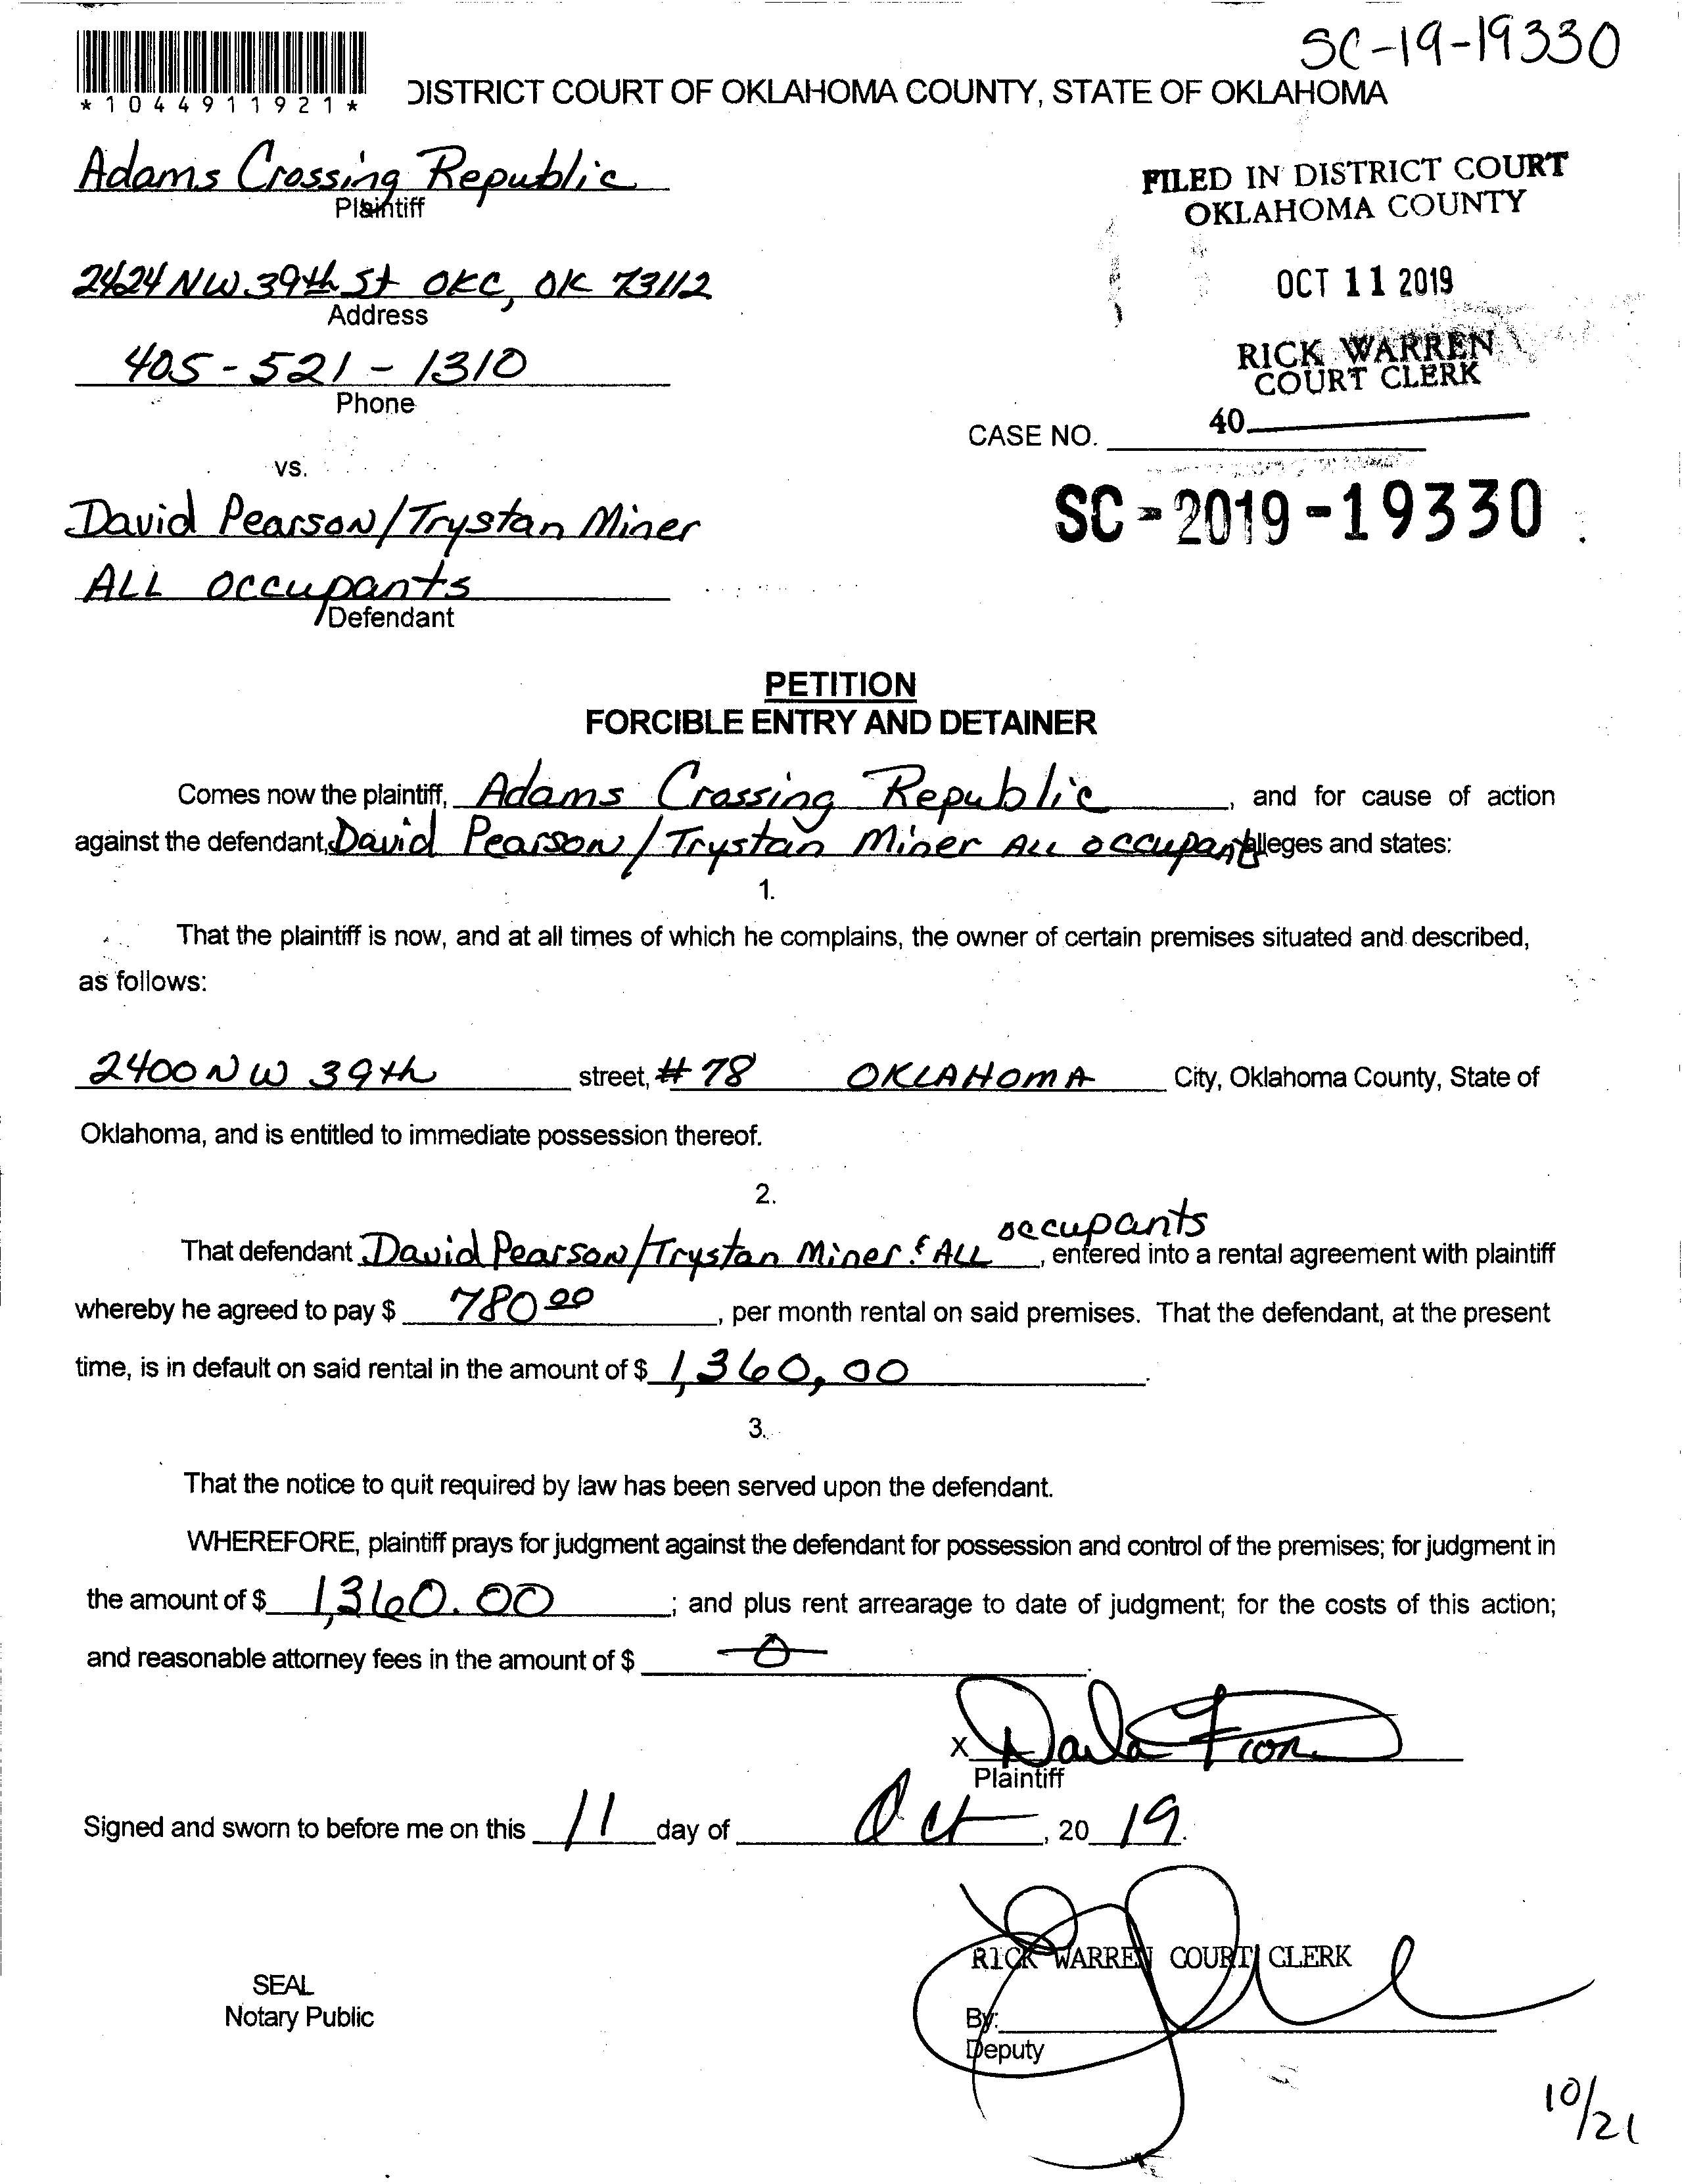 SC-19-19330
*1044911921*
DISTRICT COURT OF OKLAHOMA COUNTY, STATE OF OKLAHOMA
Adams Crossing Republic
Plaintiff
FILED IN DISTRICT COURT
OKLAHOMA COUNTY
2424 NW 39th St OKC, OK 73112
Address
OCT 11 2019
405-521-1310
Phone
RICK WARREN
COURT CLERK
40
CASE NO.
vs.
SC-2019-19330
David Pearson/Trystan Miner
ALL occupants
Defendant
PETITION
FORCIBLE ENTRY AND DETAINER
Comes now the plaintiff, Adams Crossing Republic, and for cause of action
against the defendant, David Pearson/Trystan Miner ALL occupants alleges and states:
1.
That the plaintiff is now, and at all times of which he complains, the owner of certain premises situated and described,
as follows:
2400 NW 39th street, #78 OKLAHOMA City, Oklahoma County, State of
Oklahoma, and is entitled to immediate possession thereof.
2.
That defendant David Pearson/Trystan Miner & ALL occupants, entered into a rental agreement with plaintiff
whereby he agreed to pay $ 780 00, per month rental on said premises. That the defendant, at the present
time, is in default on said rental in the amount of $ 1,360,00.
3.
That the notice to quit required by law has been served upon the defendant.
WHEREFORE, plaintiff prays for judgment against the defendant for possession and control of the premises; for judgment in
the amount of $ 1,360.00; and plus rent arrearage to date of judgment; for the costs of this action;
and reasonable attorney fees in the amount of $ -0-.
X Darla
Plaintiff
Signed and sworn to before me on this 11 day of Oct, 20 19.
RICK WARREN COURT CLERK
SEAL
Notary Public
By:
Deputy
10/21